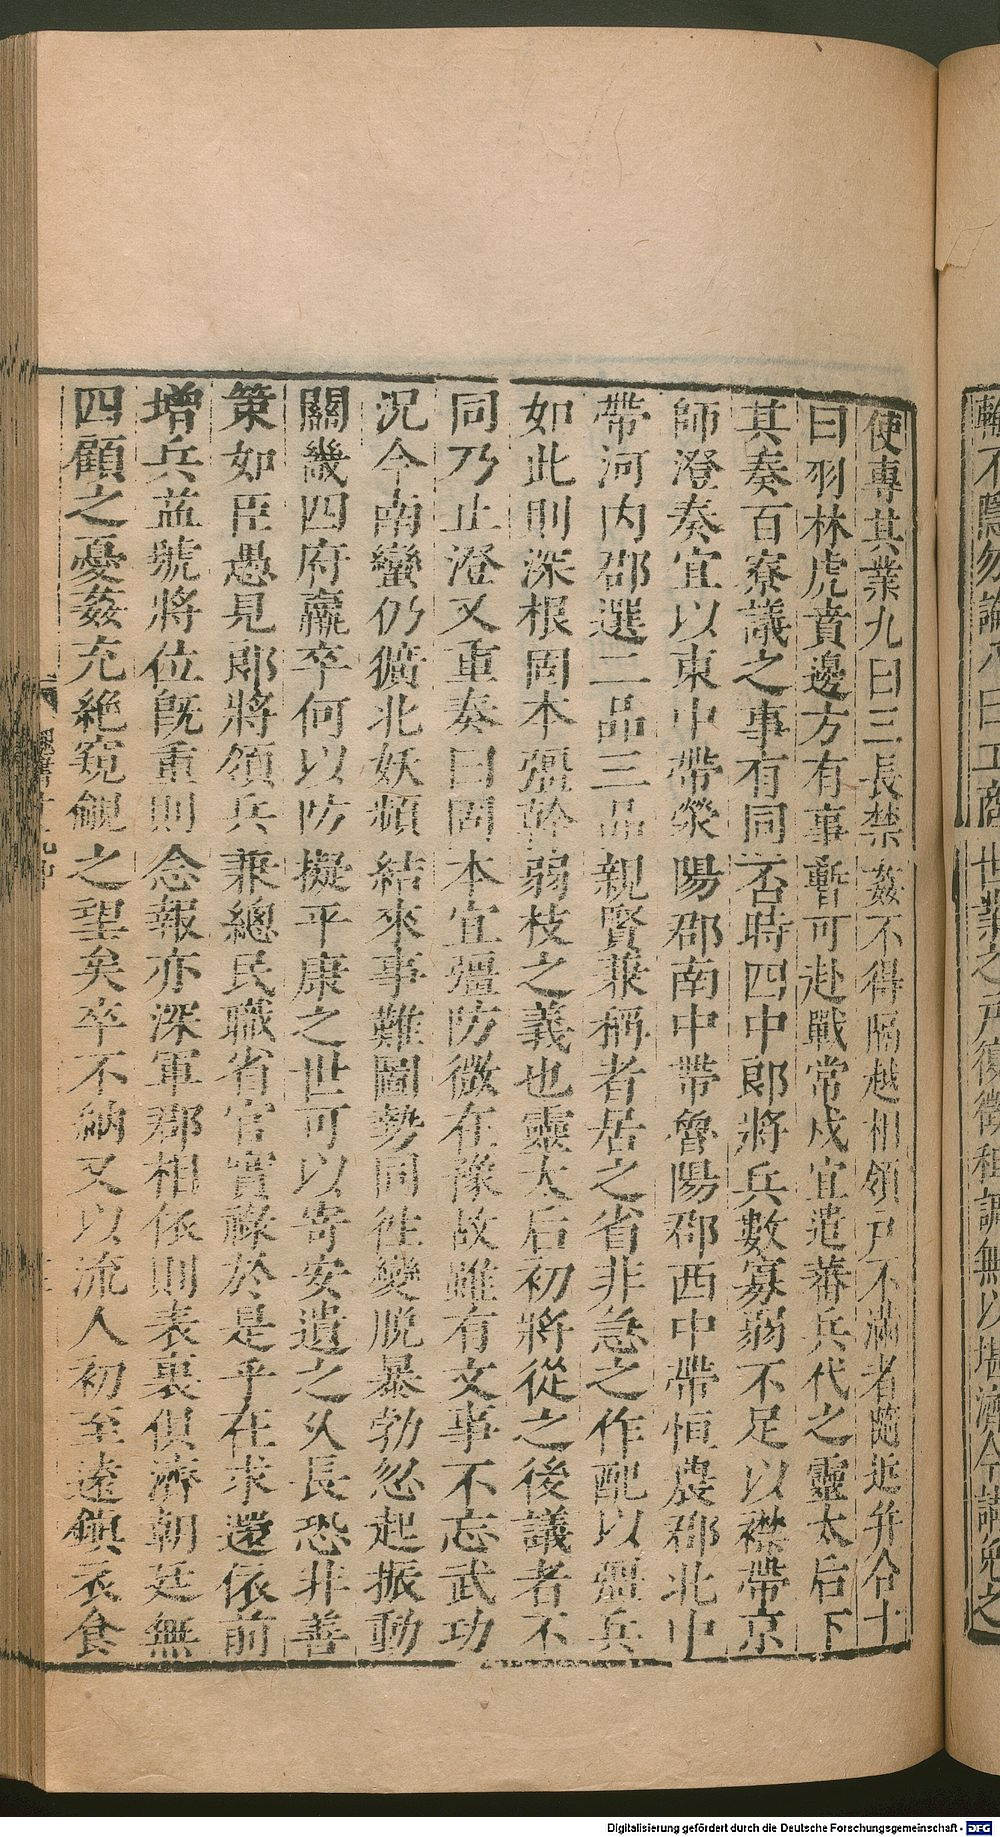 輸不隱勿論八曰工商世業之戶復徵租調無以堪濟今請免之
使專其業九曰三長禁姦不得隔越相領戶不滿者隨近并合十
曰羽林虎賁邊方有事暫可赴戰常戍宜遣蕃兵代之靈太后下
其奏百寮議之事有同否時四中郎將兵數寡弱不足以襟帶京
師澄奏宜以東中帶滎陽郡南中帶魯陽郡西中帶恒農郡北中
帶河內郡選二品三品親賢兼稱者居之省非急之作配以彊兵
如此則深根固本彊幹弱枝之義也靈太后初將從之後議者不
同乃止澄又重奏曰固本宜彊防微在豫故雖有文事不忘武功
況今南蠻仍獷北妖頻結來事難圖勢同往變脫暴勃忽起振動
關畿四府羸卒何以防擬平康之世可以寄安遺之久長恐非善
策如臣愚見郎將領兵兼總民職省官實祿於是乎在求還依前
增兵益號將位旣重則念報亦深軍郡相依則表裏俱濟朝廷無
四顧之憂姦宄絶窺覦之望矣卒不納又以流人初至遠鎮衣食
Digitalisierung gefördert durch die Deutsche Forschungsgemeinschaft - DFG